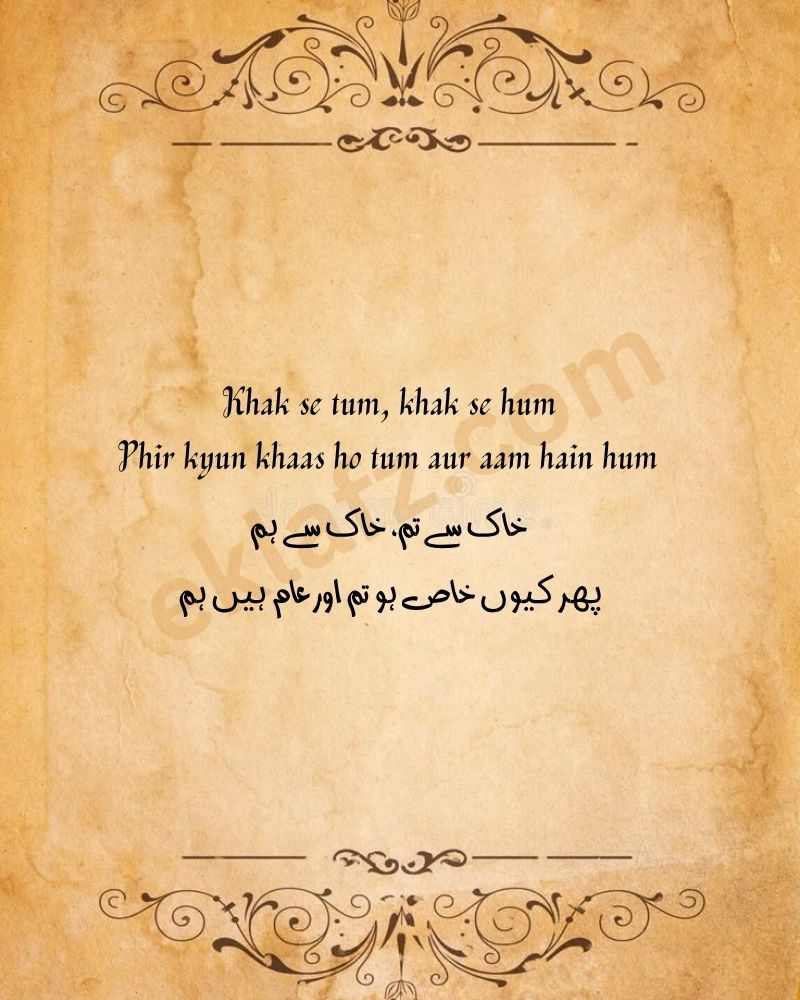 Khak se tum, khak se hum
Phir kyun khaas ho tum aur aam hain hum
خاک سے تم، خاک سے ہم
پھر کیوں خاص ہو تم اور عام ہیں ہم
eklafz.com